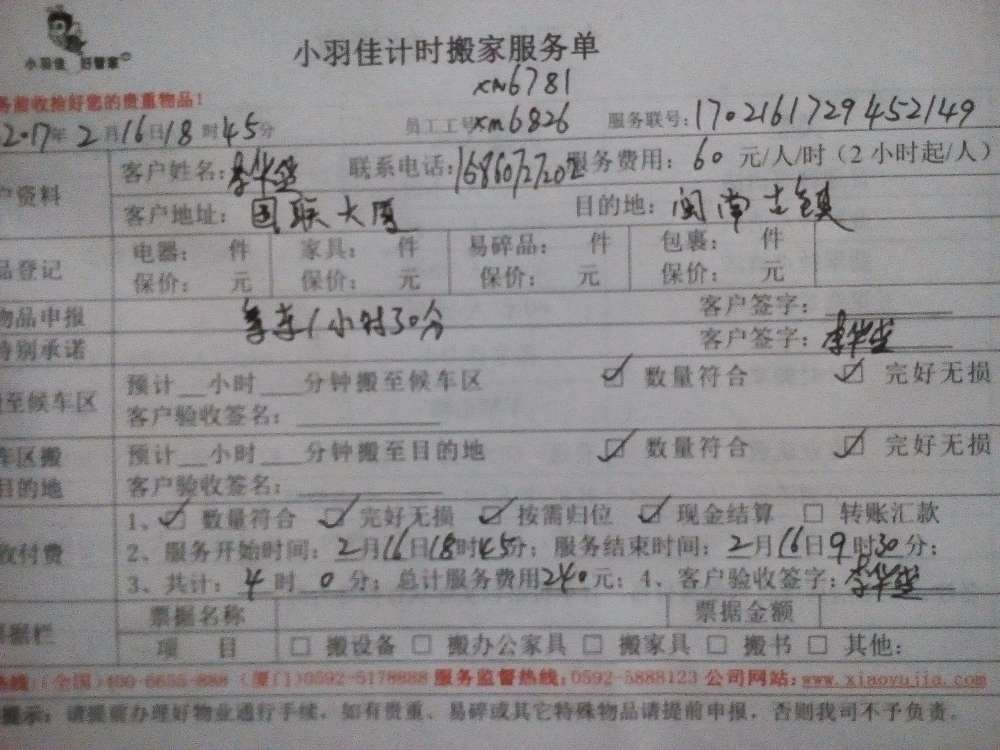 小羽佳 好管家
小羽佳计时搬家服务单
xm6781
务前收拾好您的贵重物品!
2017年2月16日18时45分 员工工号xm6826 服务联号:170216172945 2149
户资料 客户姓名: 联系电话: 服务费用:60元/人/时(2小时起/人)
客户地址:国联大厦 目的地:闽南古镇
品登记 电器: 件 家具: 件 易碎品: 件 包裹: 件
保价: 元 保价: 元 保价: 元 保价: 元
物品申报 客户签字:
特别承诺 1小时30分 客户签字:
至候车区 预计__小时___分钟搬至候车区 ☑ 数量符合 ☑ 完好无损
客户验收签名:
车区搬 预计__小时___分钟搬至目的地 ☑ 数量符合 ☑ 完好无损
目的地 客户验收签名:
1、☑ 数量符合 ☑ 完好无损 ☑ 按需归位 ☑ 现金结算 □ 转账汇款
收付费 2、服务开始时间:2月16日18时45分;服务结束时间:2月16日9时30分;
3、共计:4时0分;总计服务费用240元;4、客户验收签字:
票据名称 票据金额
票据栏 项 目 □ 搬设备 □ 搬办公家具 □ 搬家具 □ 搬书 □ 其他:
热线:(全国)400-6655-888 (厦门)0592-5178888 服务监督热线:0592-5888123 公司网站:www.xiaoyujia.com
提示:请提前办理好物业通行手续,如有贵重、易碎或其它特殊物品请提前申报,否则我司不予负责。